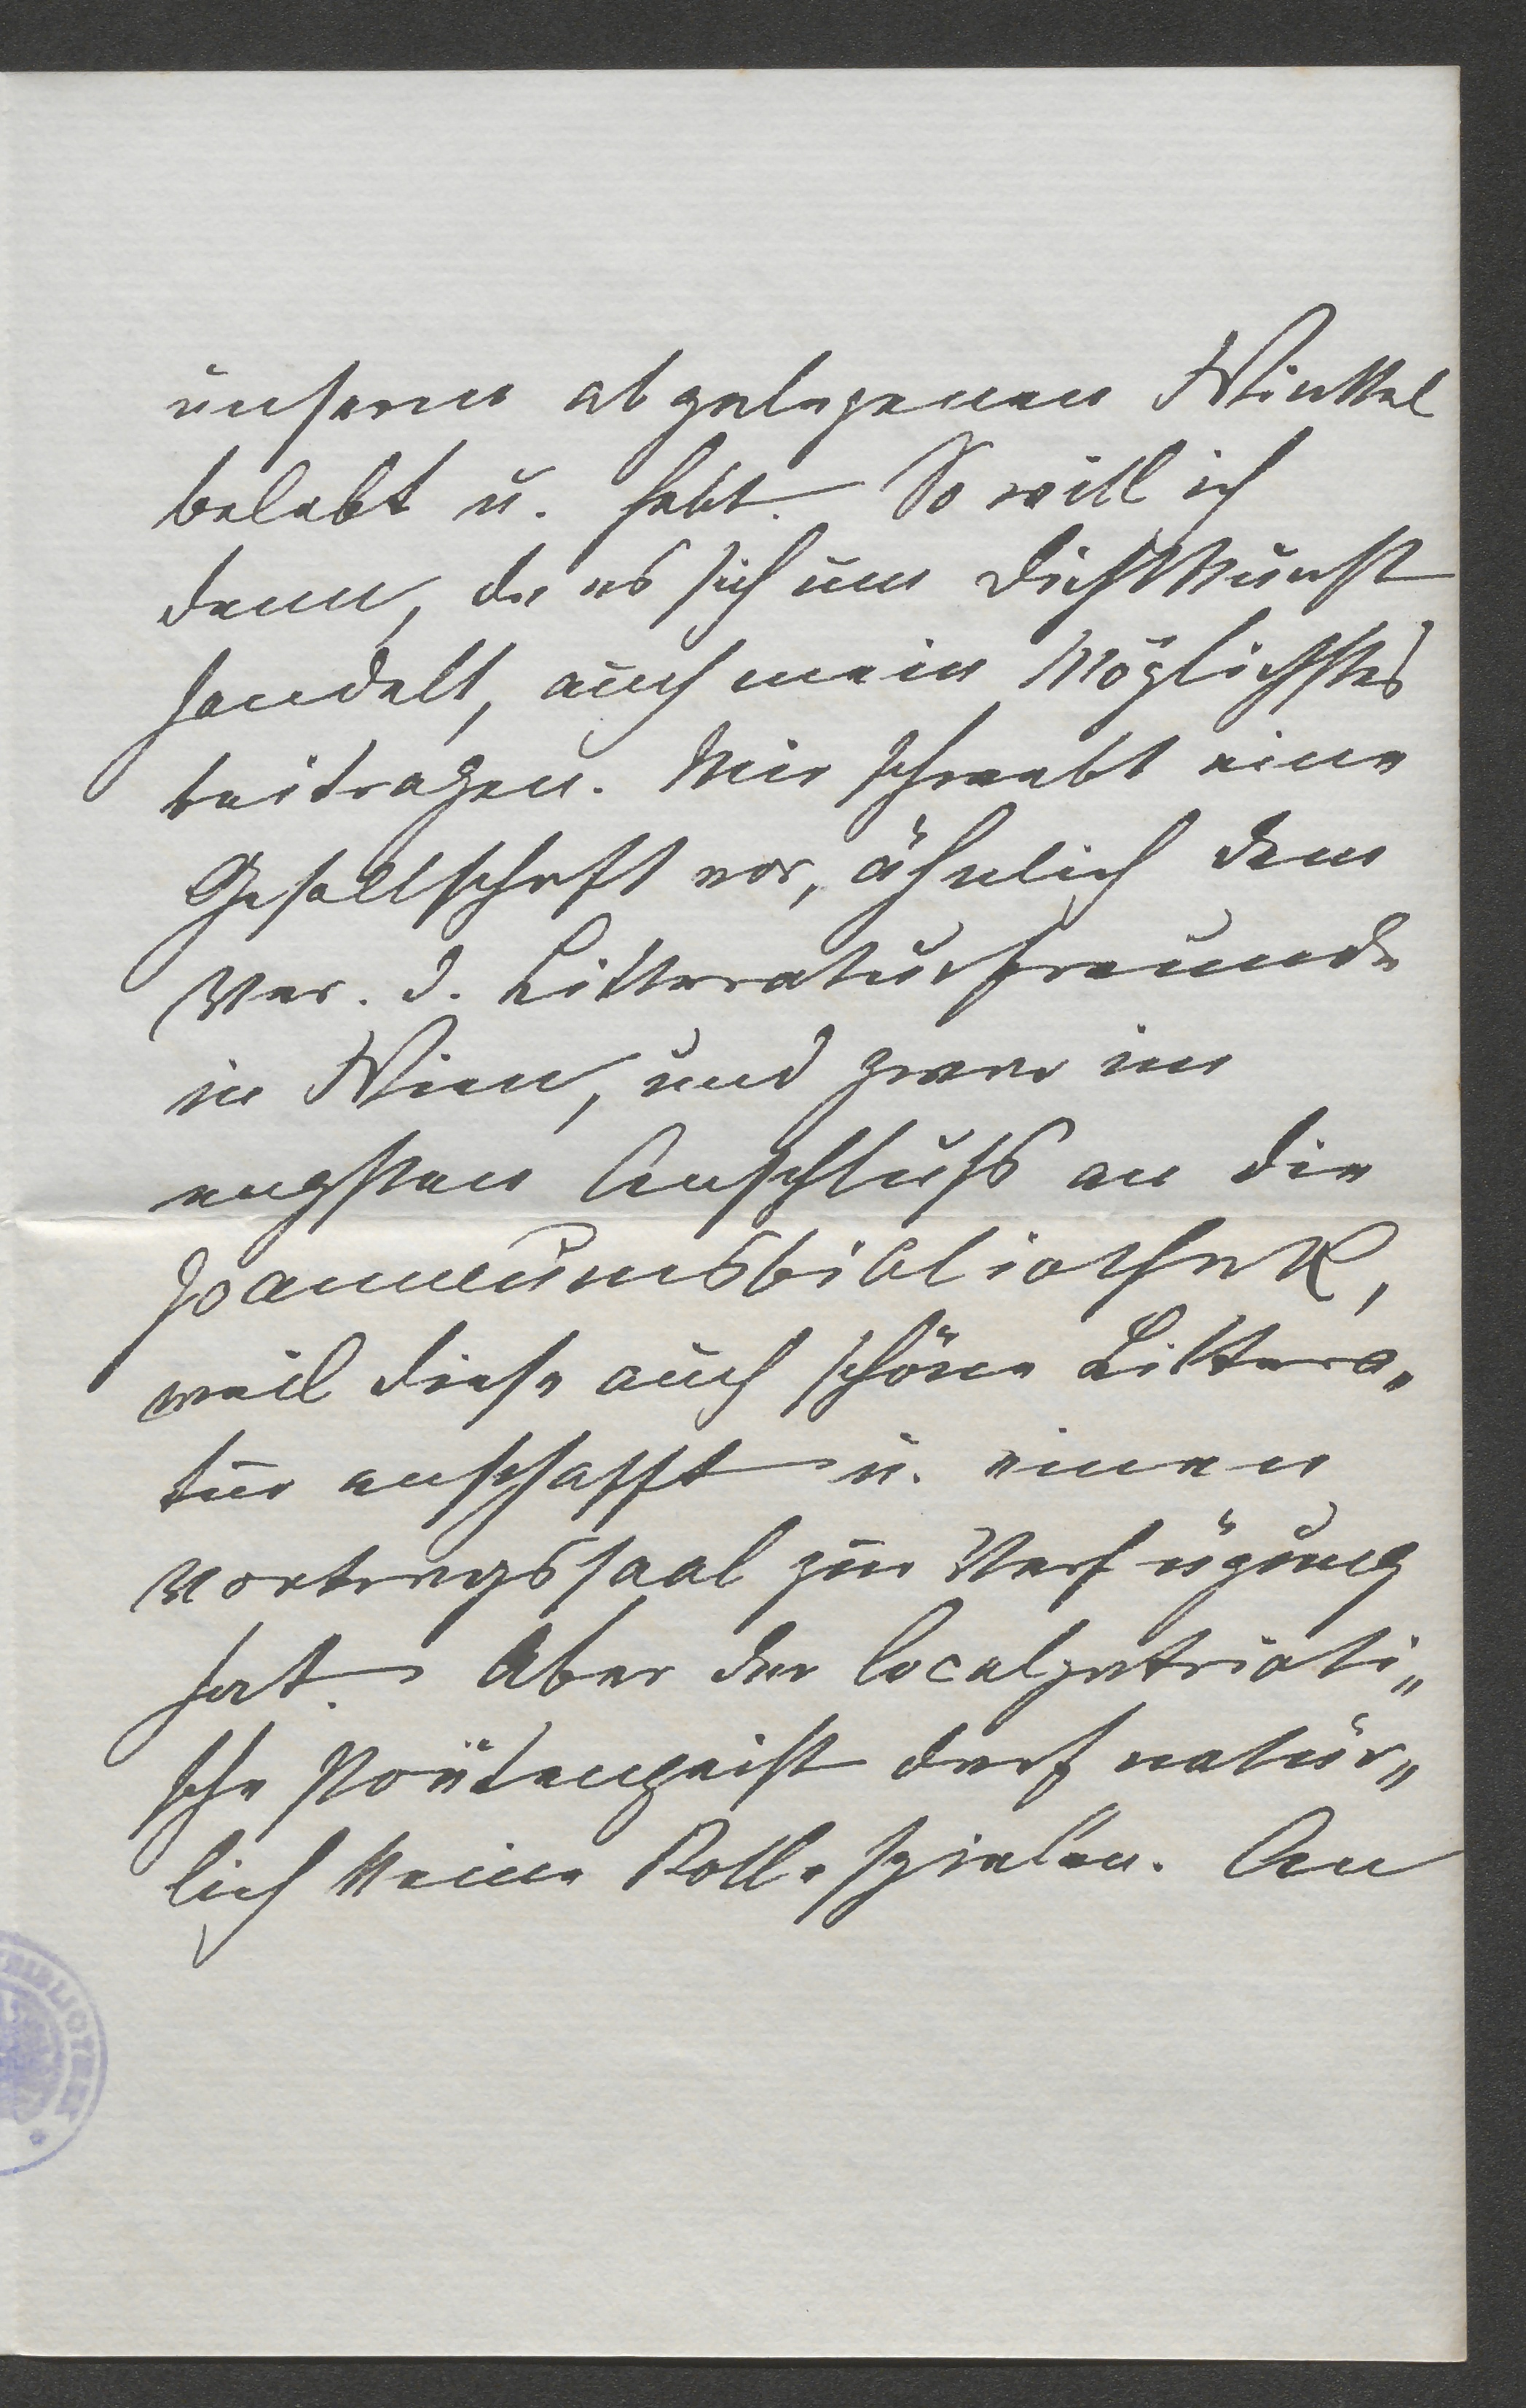 unseren abgelegenen Winkel
belebt u. hebt. So will ich
denn, da es sich um Dichtkunst
handelt, auch mein Möglichstes
beitragen. Mir schwebt eine
Gesellschaft vor, ähnlich dem
Ver. d. Litteraturfreunde
in Wien, und zwar im
engsten Anschluss an die
Joanneumsbibliothek,
weil diese auch schöne Littera„
tur anschafft u. einen
Vortragssaal zur Verfügung
hat. Aber der localpatrioti„
sche darf natür„
lich keine Rolle spielen. An
BIBLIOTHEK